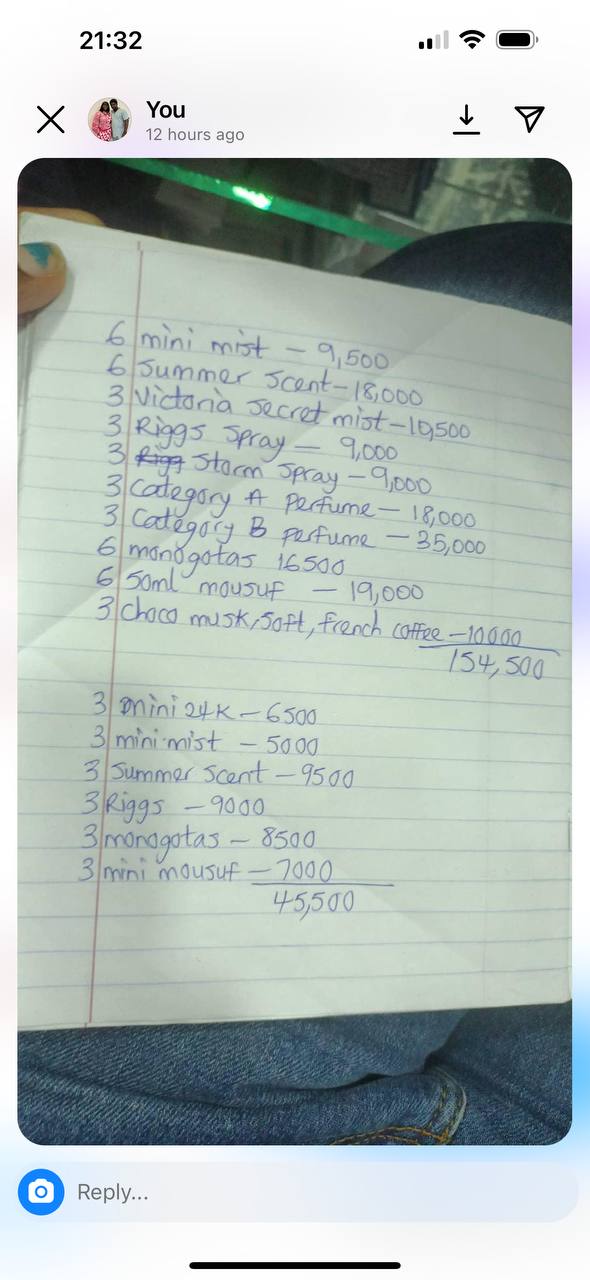 21:32
You
12 hours ago
6 mini mist - 9,500
6 Summer Scent - 18,000
3 Victoria Secret mist - 10,500
3 Riggs Spray - 9,000
3 Storm Spray - 9,000
3 Category A Perfume - 18,000
3 Category B perfume - 35,000
6 monogotas 16500
6 50ml mousuf - 19,000
3 Choco musk, Soft, french coffee - 10000
154,500
3 mini 24K - 6500
3 mini mist - 5000
3 Summer Scent - 9500
3 Riggs - 9000
3 monogotas - 8500
3 mini mousuf - 7000
45,500
Reply...